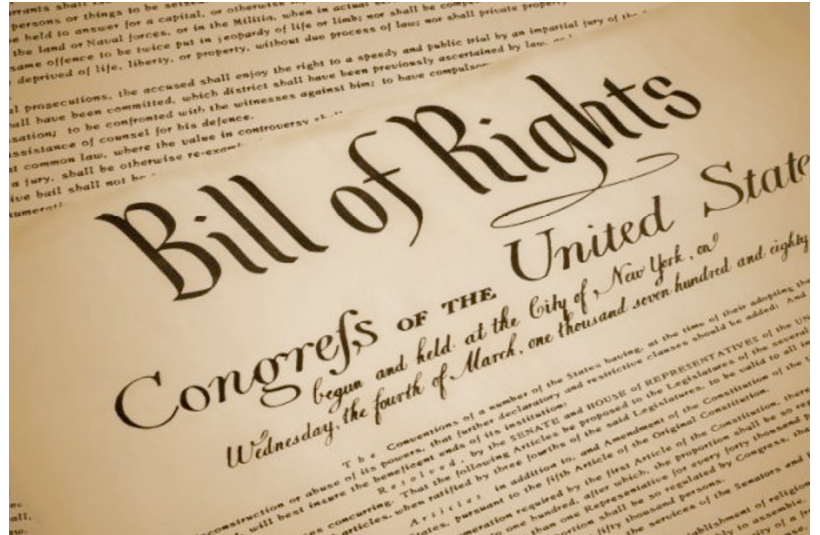 rrants shall
persons or things to be seized
be held to answer for a capital, or otherwise
the land or Naval forces, or in the Militia, when in actual
same offence to be twice put in jeopardy of life or limb; nor shall be
deprived of life, liberty, or property, without due process of law; nor shall private
l prosecutions, the accused shall enjoy the right to a speedy and public trial by an impartial jury of the
all have been committed, which district shall have been previously ascertained by law,
sation; to be confronted with the witnesses against him; to have compulso
ssistance of counsel for his defence.
t common law, where the value in controversy
a jury, shall be otherwise re-exam
ive bail shall not be
Bill of Rights
Congreſs OF THE United State
begun and held at the City of New York, on
Wednesday, the fourth of March, one thousand seven hundred and eighty
The Conventions of a number of the States having, at the time of their adopting the
onstruction or abuse of its powers, that further declaratory and restrictive clauses should be added: And
will best insure the beneficent ends of its institution:
Resolved, by the SENATE and HOUSE of REPRESENTATIVES of the UN
es concurring. That the following Articles be proposed to the Legislatures of the several
articles, when ratified by three fourths of the said Legislatures, to be valid to all in
Articles in addition to, and Amendment of the Constitution of the
States, pursuant to the fifth Article of the Original Constitution.
meration required by the first Article of the Constitution, there
to one hundred, after which, the proportion shall be so reg
than one Representative for every forty thousand p
portion shall be so regulated by Congress, tha
fifty thousand persons.
the services of the Senators and
establishment of religion